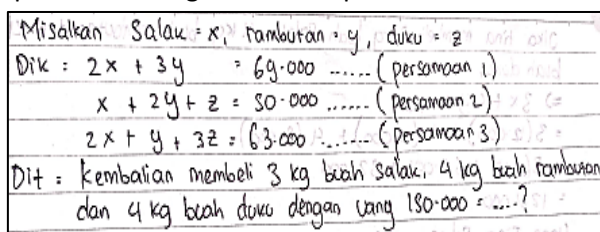 Misalkan Salak = x, rambutan = y, duku = z
Dik : 2x + 3y = 69.000 ...... (persamaan 1)
x + 2y + z = 50.000 ...... (persamaan 2)
2x + y + 3z = 63.000 ...... (persamaan 3)
Dit : Kembalian membeli 3 kg buah salak, 4 kg buah rambutan
dan 4 kg buah duku dengan uang 180.000 = ....?